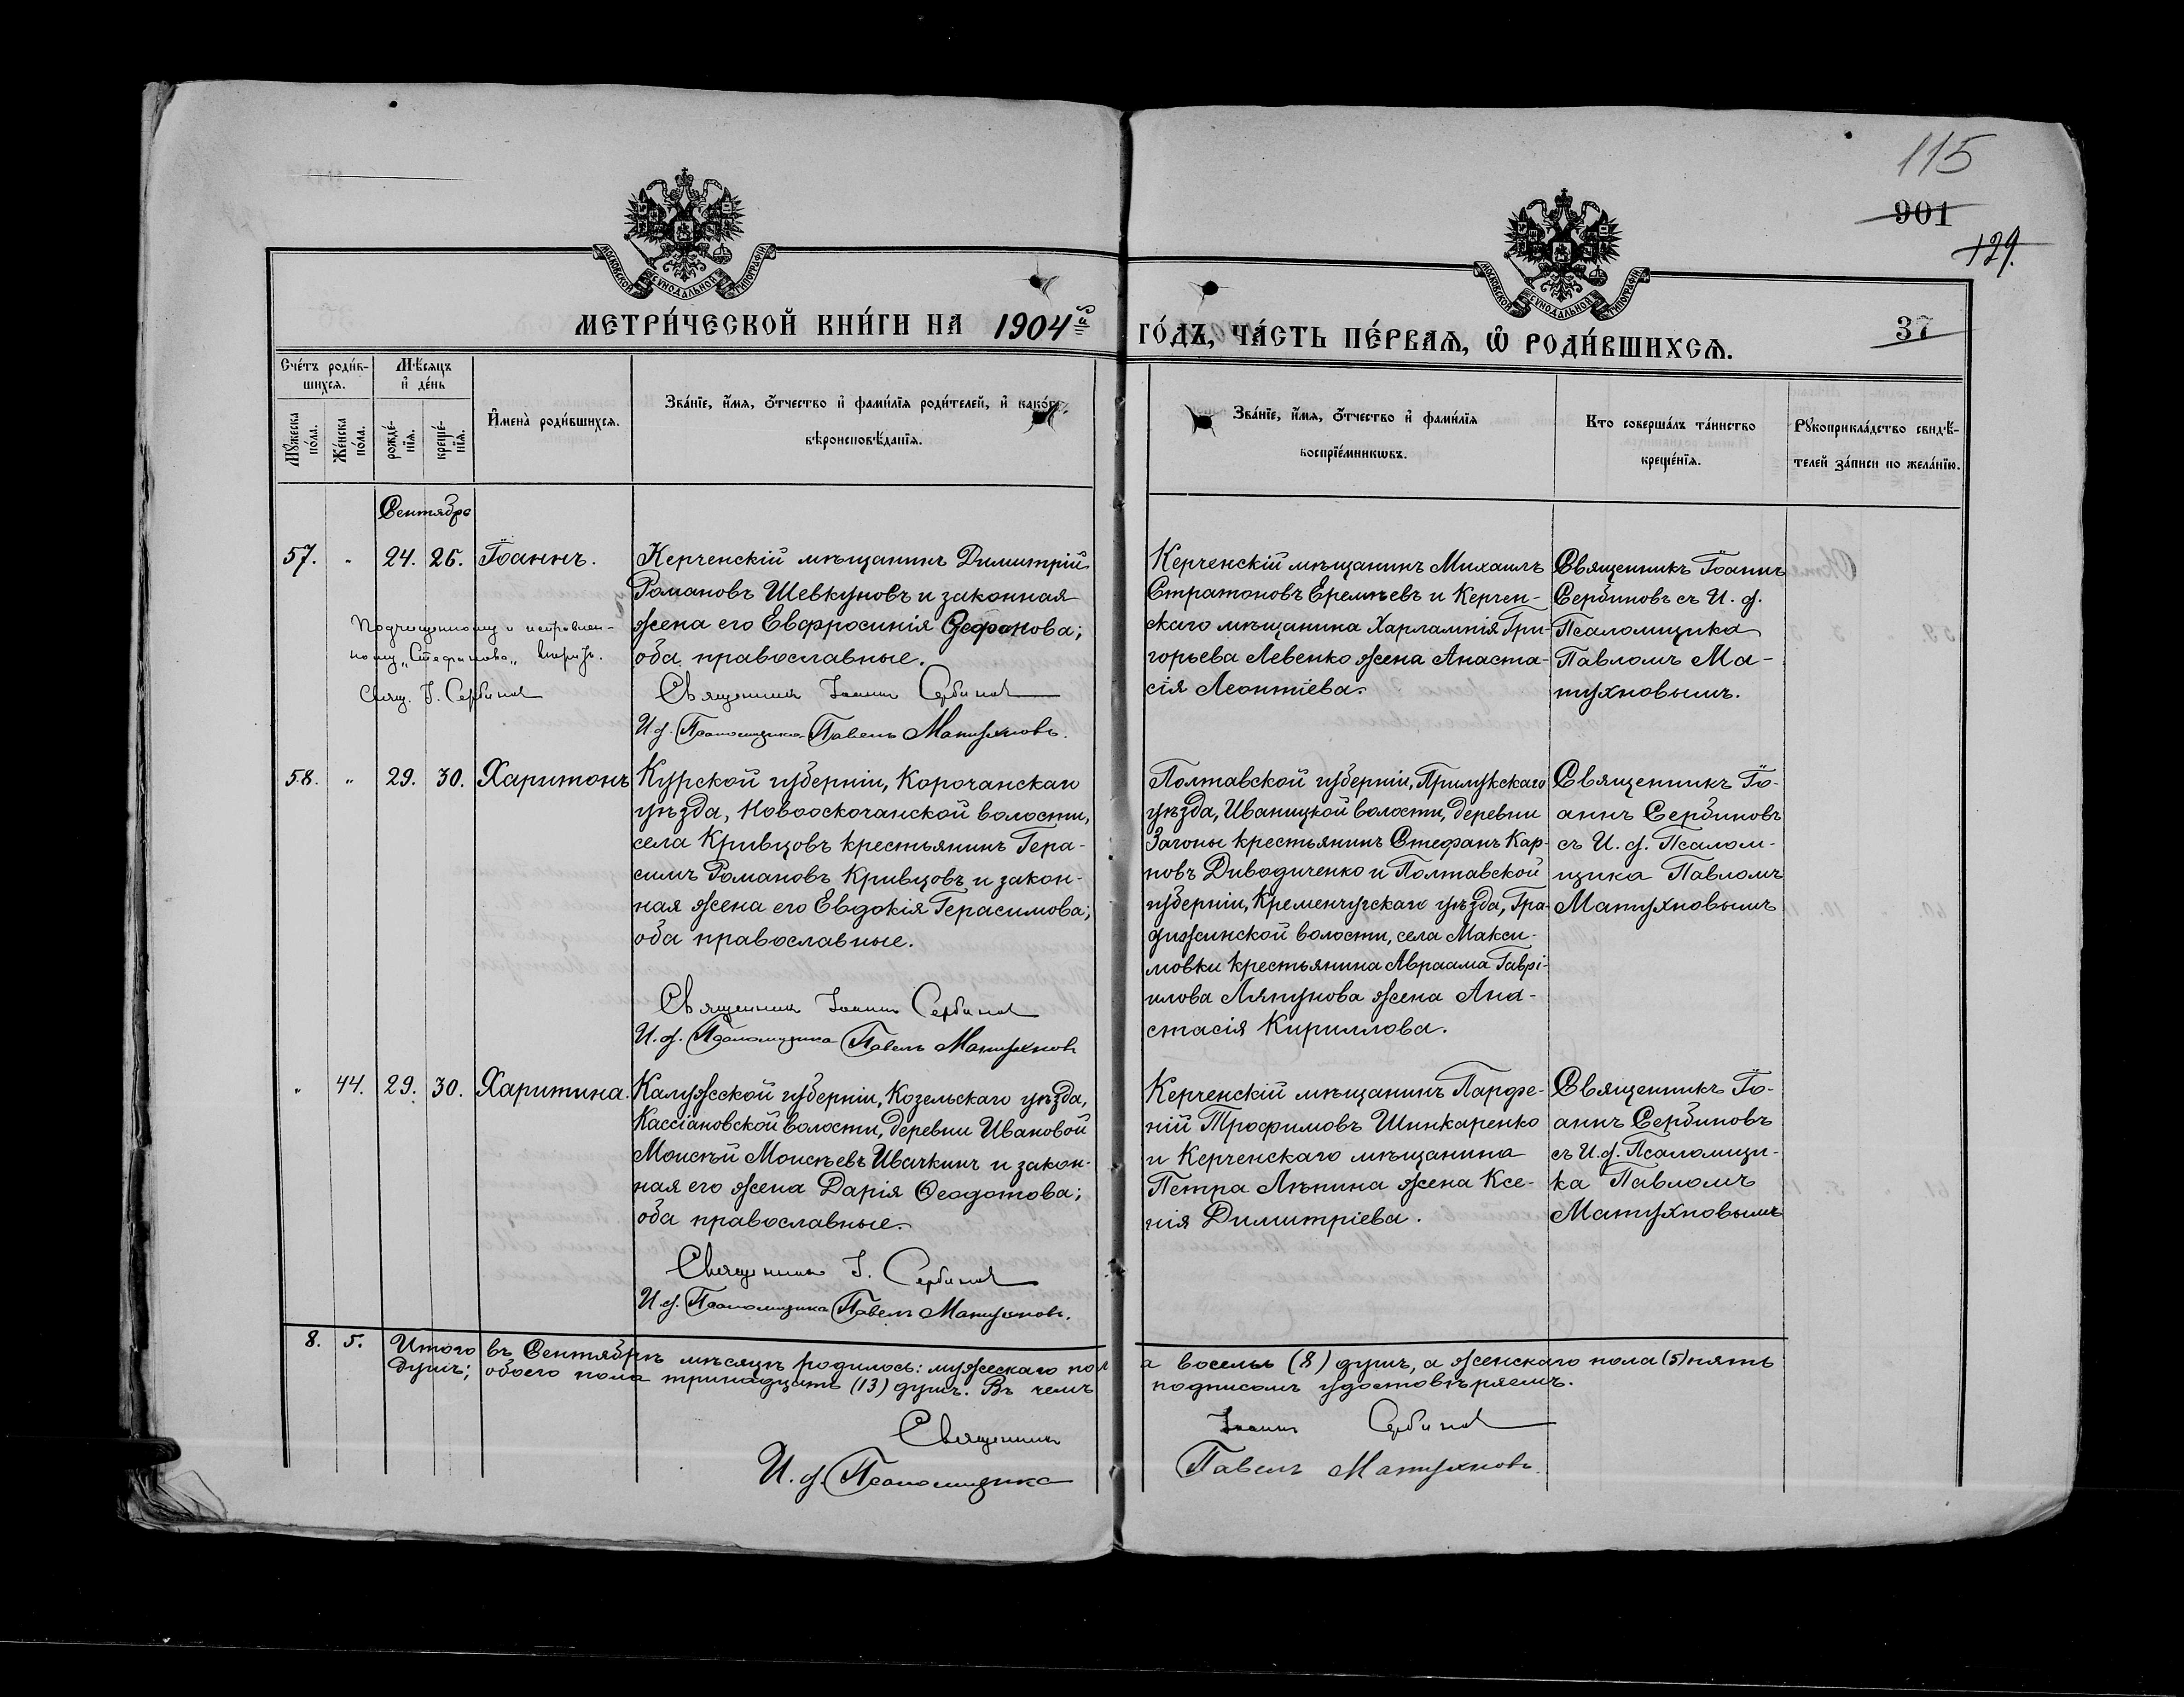 115
901
129.
МОСКОВСКОЙ СѴНОДАЛЬНОЙ ТИПОГРАФІИ
МОСКОВСКОЙ СѴНОДАЛЬНОЙ ТИПОГРАФІИ
МЕТРИ́ЧЕСКОЙ КНИ́ГИ НА 1904й ГО́ДЪ, ЧА́СТЬ ПЕ́РВАѦ, Ѡ РОДИ́ВШИХСѦ.
37
Сче́тъ роди́в-
шихсѧ.
Мѣ́сѧцъ
и҆ де́нь
Мꙋ́жеска
по́ла.
Же́нска
по́ла.
рожде́-
нїѧ.
креще́-
нїѧ.
И҆мена̀ роди́вшихсѧ.
Зва́нїе, и҆́мѧ, ѻ҆́тчество и҆ фами́лїѧ роди́телей, и҆ како́гѡ
вѣроисповѣ́данїѧ.
Зва́нїе, и҆́мѧ, ѻ҆́тчество и҆ фами́лїѧ
воспрїе́мникѡвъ.
Кто соверша́лъ та́инство
креще́нїѧ.
Рꙋкоприкла́дство свидѣ́-
телей за́писи по жела́нїю.
Сентябрь
57. " 24. 26. Іоаннъ.
Керченскій мѣщанинъ Димитрій
Романовъ Шевкуновъ и законная
жена его Евфросинія Стефанова;
оба православные.
Подчищенному и исправлен-
ному „Стефанова„ вѣрить.
Свящ. І. Сербиновъ
Священникъ Іоаннъ Сербиновъ
И. д. Псаломщика Павелъ Матухновъ.
Керченскій мѣщанинъ Михаилъ
Стратоновъ Еремѣевъ и Керчен-
скаго мѣщанина Харлампія Гри-
горьева Левенко жена Анаста-
сія Леонтіева.
Священникъ Іоаннъ
Сербиновъ съ И. д.
Псаломщика
Павломъ Ма-
тухновымъ.
58. " 29. 30. Харитонъ
Курской губерніи, Корочанскаго
уѣзда, Новооскочанской волости,
села Кривцовъ крестьянинъ Гера-
симъ Романовъ Кривцовъ и закон-
ная жена его Евдокія Герасимова;
оба православные.
Священникъ Іоаннъ Сербиновъ
И. д. Псаломщика Павелъ Матухновъ
Полтавской губерніи, Прилукскаго
уѣзда, Иваницкой волости, деревни
Загоны крестьянинъ Стефанъ Кар-
повъ Диводиченко и Полтавской
губерніи, Кременчугскаго уѣзда, Гра-
дижинской волости, села Макси-
мовки крестьянина Авраама Гаврі-
илова Ляпунова жена Ана-
стасія Кириллова.
Священникъ Іо-
аннъ Сербиновъ
съ И. д. Псалом-
щика Павломъ
Матухновымъ
" 44. 29. 30. Харитина.
Калужской губерніи, Козельскаго уѣзда,
Кассіановской волости, деревни Ивановой
Моисѣй Моисѣевъ Ивачкинъ и закон-
ная его жена Дарія Ѳеодотова;
оба православные.
Священникъ І. Сербиновъ
И. д. Псаломщика Павелъ Матухновъ.
Керченскій мѣщанинъ Парѳе-
ній Трофимовъ Шинкаренко
и Керченскаго мѣщанина
Петра Лѣпина жена Ксе-
нія Димитріева.
Священникъ Іо-
аннъ Сербиновъ
съ И. д. Псаломщи-
ка Павломъ
Матухновымъ
8. 5. Итого въ Сентябрѣ мѣсяцѣ родилось: мужескаго пола восемь (8) душъ, а женскаго пола (5) пять
душъ; обоего пола тринадцать (13) душъ. Въ чемъ подписомъ удостовѣряемъ.
Священникъ Іоаннъ Сербиновъ
И. д. Псаломщика Павелъ Матухновъ.